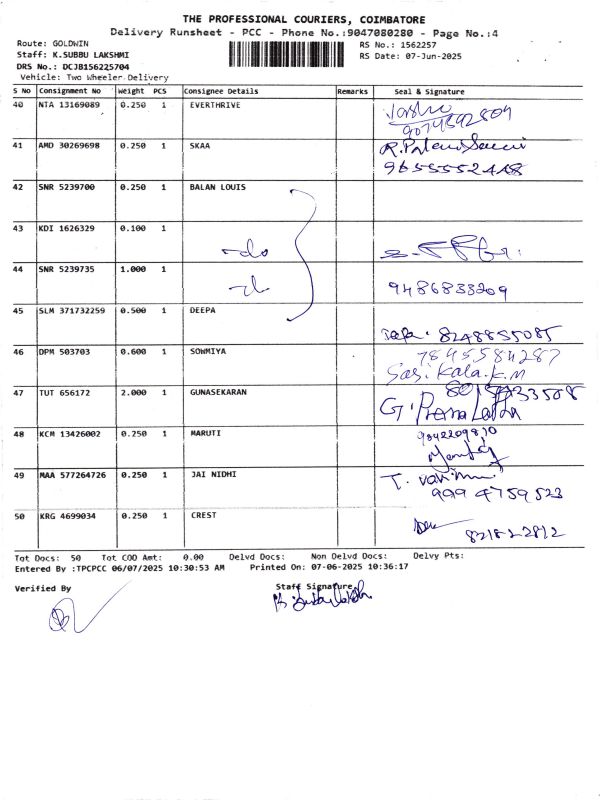 THE PROFESSIONAL COURIERS, COIMBATORE
Delivery Runsheet - PCC - Phone No.:9047080280 - Page No.:4
Route: GOLDWIN
RS No.: 1562257
Staff: K.SUBBU LAKSHMI
RS Date: 07-Jun-2025
DRS No.: DCJB156225704
Vehicle: Two Wheeler Delivery
S No Consignment No Weight PCS Consignee Details Remarks Seal & Signature
40 NTA 13169089 0.250 1 EVERTHRIVE
9074592809
41 AMD 30269698 0.250 1 SKAA
9655552448
42 SNR 5239700 0.250 1 BALAN LOUIS
43 KDI 1626329 0.100 1 -do
44 SNR 5239735 1.000 1
9486833209
45 SLM 371732259 0.500 1 DEEPA
8248855085
46 DPM 503703 0.600 1 SOWMIYA 7845584287
Sasikala.K.M
47 TUT 656172 2.000 1 GUNASEKARAN
G. Prema Latha
48 KCM 13426002 0.250 1 MARUTI 9842209810
49 MAA 577264726 0.250 1 JAI NIDHI
9994759523
50 KRG 4699034 0.250 1 CREST
Tot Docs: 50 Tot COD Amt: 0.00 Delvd Docs: Non Delvd Docs: Delvy Pts:
Entered By :TPCPCC 06/07/2025 10:30:53 AM Printed On: 07-06-2025 10:36:17
Verified By
Staff Signature